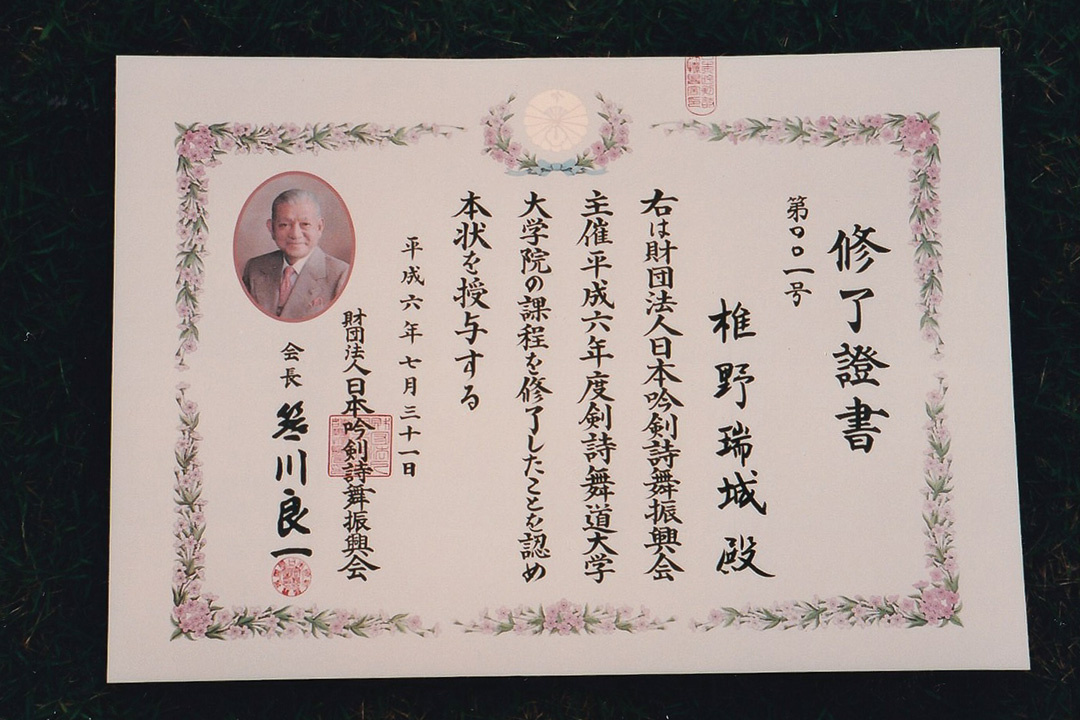 修了證書
第〇〇一号
椎野瑞城殿
右は財団法人日本吟剣詩舞振興会
主催平成六年度剣詩舞道大学
大学院の課程を修了したことを認め
本状を授与する
平成六年七月三十一日
財団法人日本吟剣詩舞振興会
会長 笹川良一